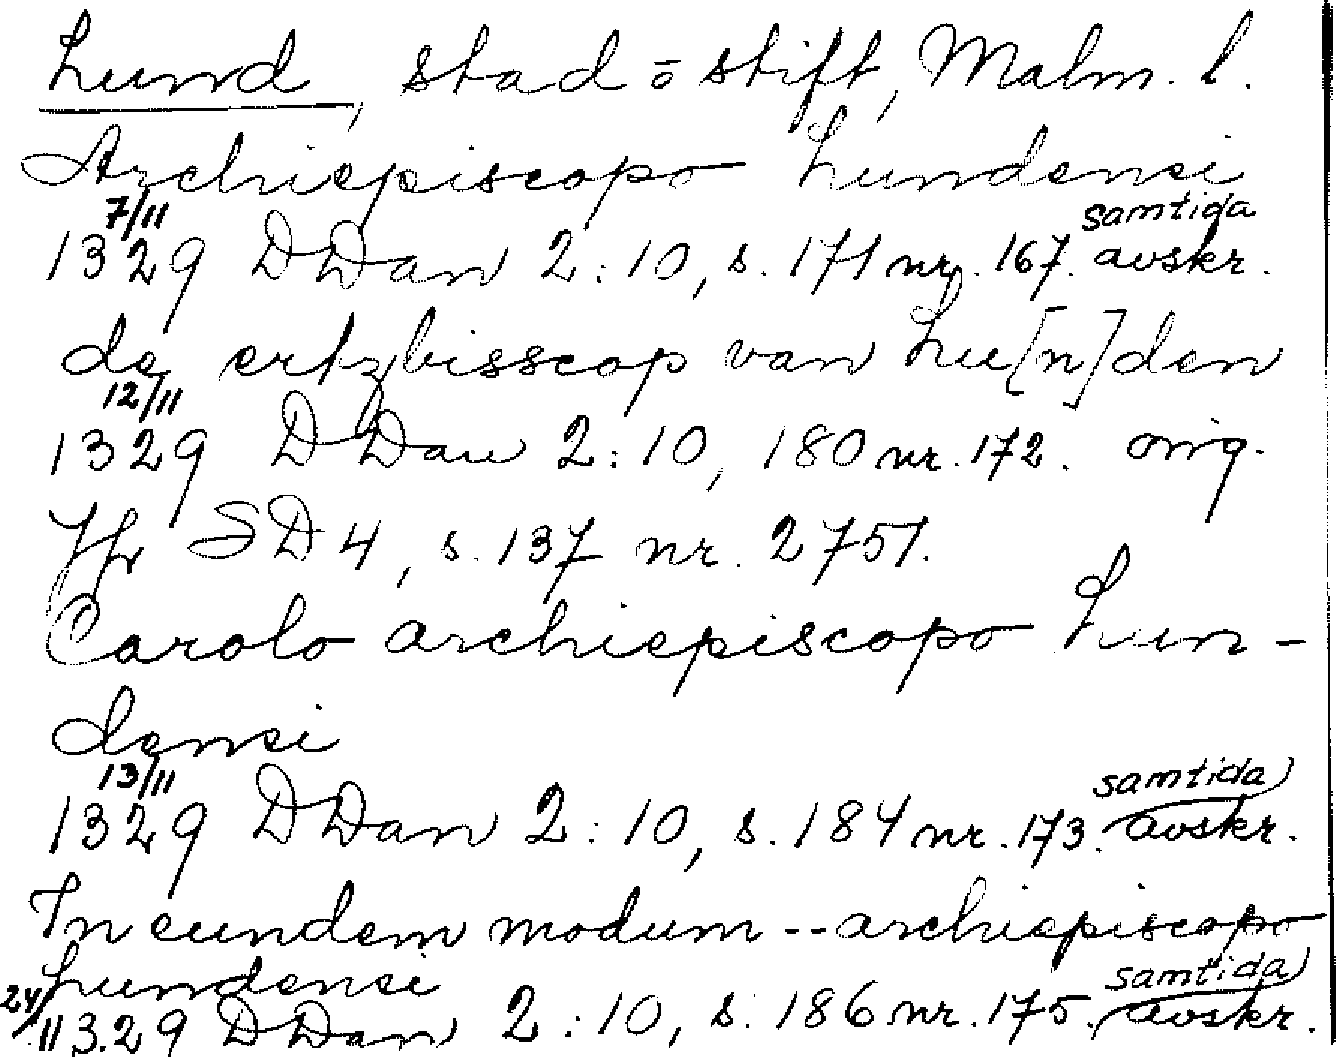 Lund, stad o stift, Malm. l.
Archiepiscopo Lundensi
7/11 samtida
1329 DDan 2:10, s. 171 nr. 167. avskr.
de ertzbisscop van Lu[n]den
12/11
1329 DDan 2:10, 180 nr. 172. orig.
Jfr SD 4, s. 137 nr. 2751.
Carolo archiepiscopo Lun-
densi
13/11 samtida
1329 DDan 2:10, s. 184 nr. 173. avskr.
In eundem modum -- archiepiscopo
Lundensi
24/11 samtida
1329 DDan 2:10, s. 186 nr. 175. avskr.